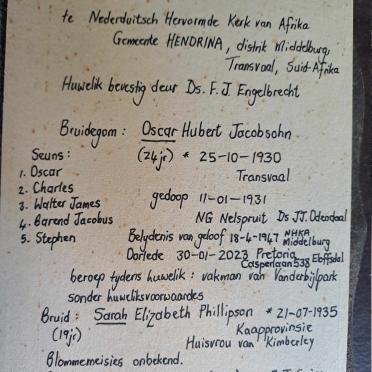 te Nederduitsch Hervormde Kerk van Afrika
Gemeente HENDRINA, distrik Middelburg,
Transvaal, Suid-Afrika
Huwelik bevestig deur Ds. F.J Engelbrecht
Bruidegom : Oscar Hubert Jacobsohn
Seuns : (24jr) * 25-10-1930
1. Oscar Transvaal
2. Charles
3. Walter James gedoop 11-01-1931
4. Barend Jacobus NG Nelspruit Ds JJ. Odendaal
5. Stephen Belydenis van geloof 18-4-1947 NHKA Middelburg
Oorlede 30-01-2023 Pretoria
Casperlaan 538 Eloffsdal
beroep tydens huwelik : vakman van Vanderbijlpark
sonder huweliksvoorwaardes
Bruid : Sarah Elizabeth Phillipson * 21-07-1935
(19jr) Kaapprovinsie
Huisvrou van Kimberley
Blommemeisies onbekend.